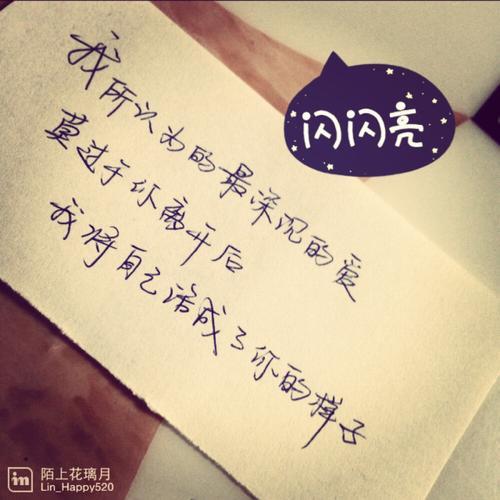 闪闪亮
我所认为的最深沉的爱
莫过于你离开后
我将自己活成了你的样子
陌上花璃月
Lin_Happy520